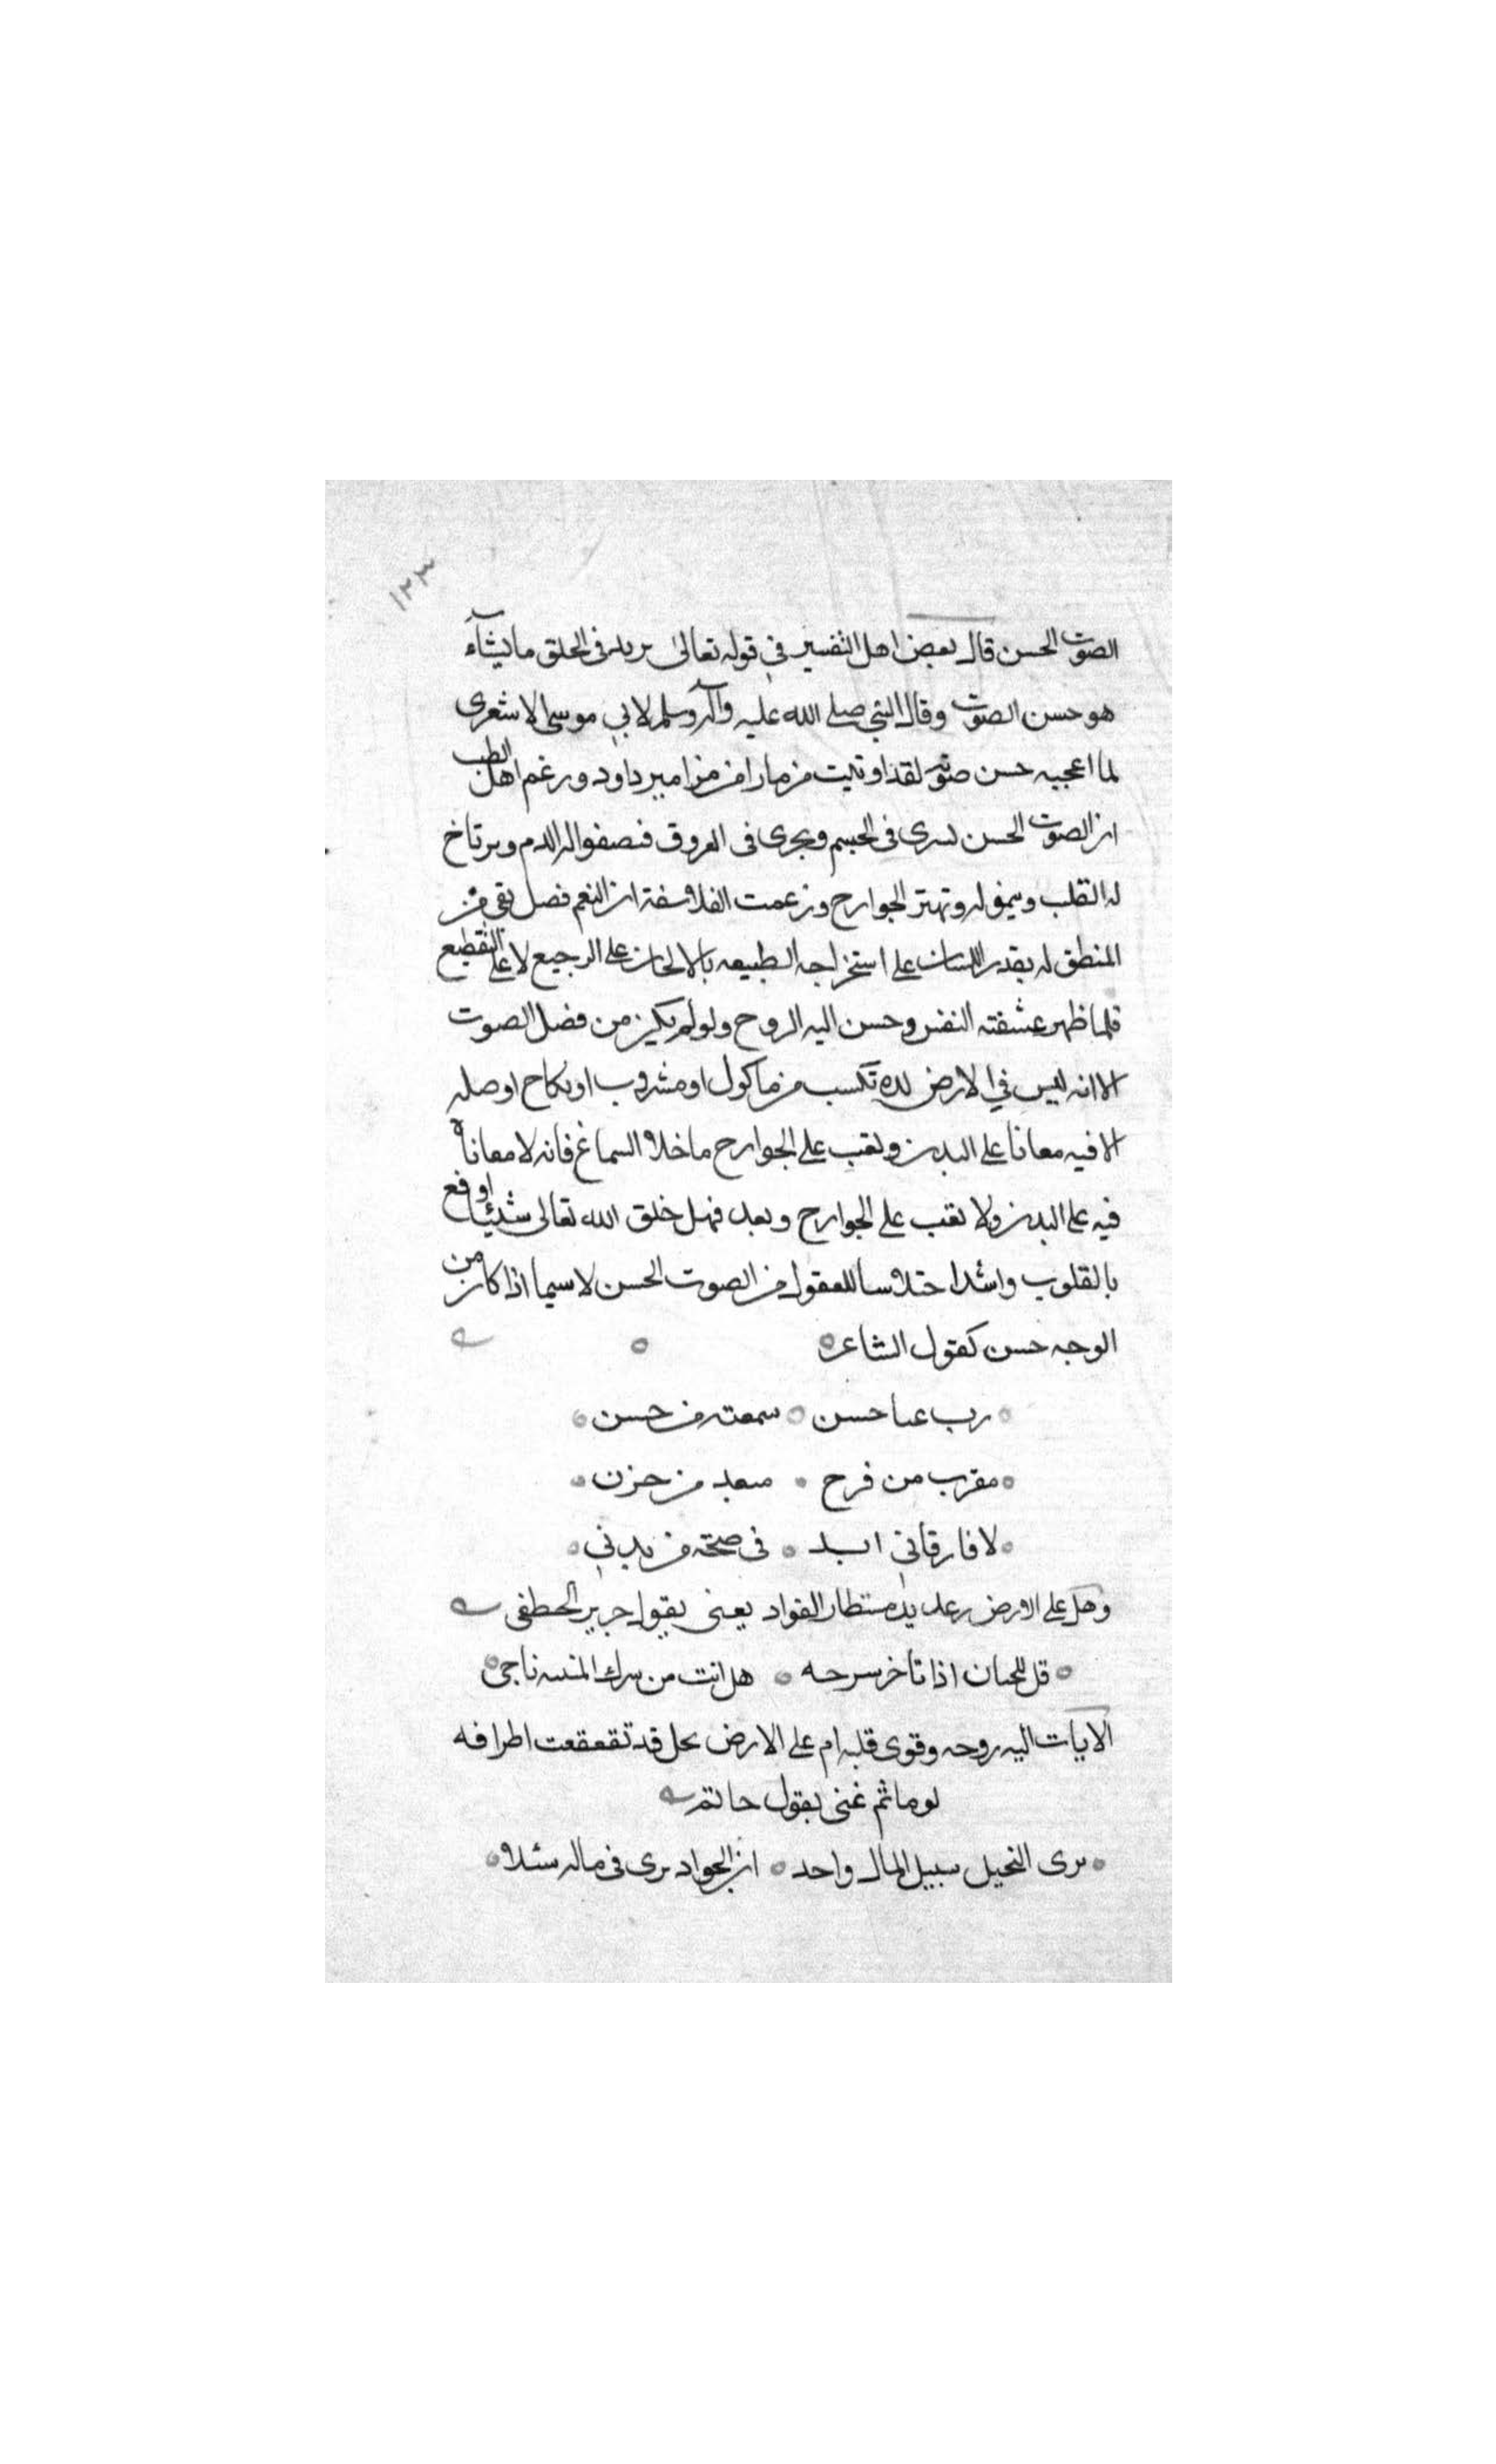 ١٢٣
الصوت الحسن قال بعض اهل التفسير في قوله تعالى يريد في الخلق ما يشآء
هو حسن الصوت وقال النبي صلى الله عليه وآله وسلم لابي موسى الاشعرى
لما اعجبه حسن صوته لقد اوتيت مزمارا من مزامير داود وزعم اهل الطب
ان الصوت الحسن يسرى فى الجسم ويجرى فى العروق فيصفوا له الدم ويرتاح
له القلب وينمو له وتهتز الجوارح وزعمت الفلاسفة ان النغم فضل بقى من
المنطق لم يقدر اللسان على استخراجه الطبيعه بالالحان على الرجيع لا على التقطيع
فلما ظهر عشقته النفس وحسن اليه الروح ولو لم يكن من فضل الصوت
الا انه ليس في الارض لده تكسب من ماكول او مشروب او نكاح او صله
الا فيه معاناة على البدن وتعب على الجوارح ما خلا السماع فانه لا معاناة
فيه على البدن ولا تعب على الجوارح وبعد فهل خلق الله تعالى شيئا اوقع
بالقلوب واشد اختلاسا للعقول من الصوت الحسن لا سيما اذا كان من
الوجه حسن كقول الشاعر
رب غنا حسن سمعته من حسن
مقرب من فرح مبعد من حزن
لا فارقاني ابدا فى صحة من بدني
وهل على الارض رعديد مستطار الفواد يغنى بقول جرير الخطفى
قل للجبان اذا تاخر سرجه هل انت من شرك المنيه ناجى
الا ثابت اليه روحه وقوى قلبه ام على الارض بخل قد تقعقعت اطرافه
لوما ثم غنى بقول حاتم
يرى البخيل سبيل المال واحد ان الجواد يرى فى ماله سبلا